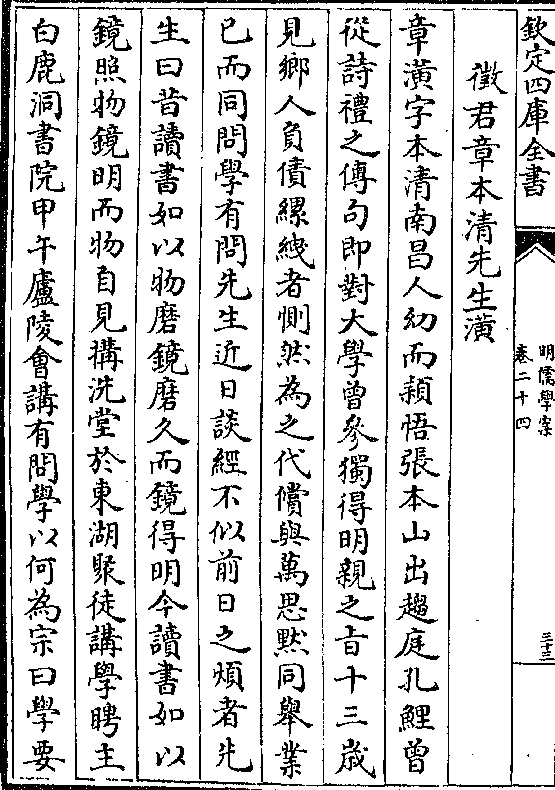 欽定四庫全書
明儒學案
卷二十四
三十三
徵君章本清先生潢
章潢字本清南昌人幼而穎悟張本山出趨庭孔鯉曾
從詩禮之傳句即對大學曾參獨得明親之旨十三歲
見鄉人負債縲絏者惻然為之代償與萬思黙同舉業
已而同問學有問先生近日談經不似前日之煩者先
生曰昔讀書如以物磨鏡磨久而鏡得明今讀書如以
鏡照物鏡明而物自見搆洗堂於東湖聚徒講學聘主
白鹿洞書院甲午廬陵會講有問學以何為宗曰學要